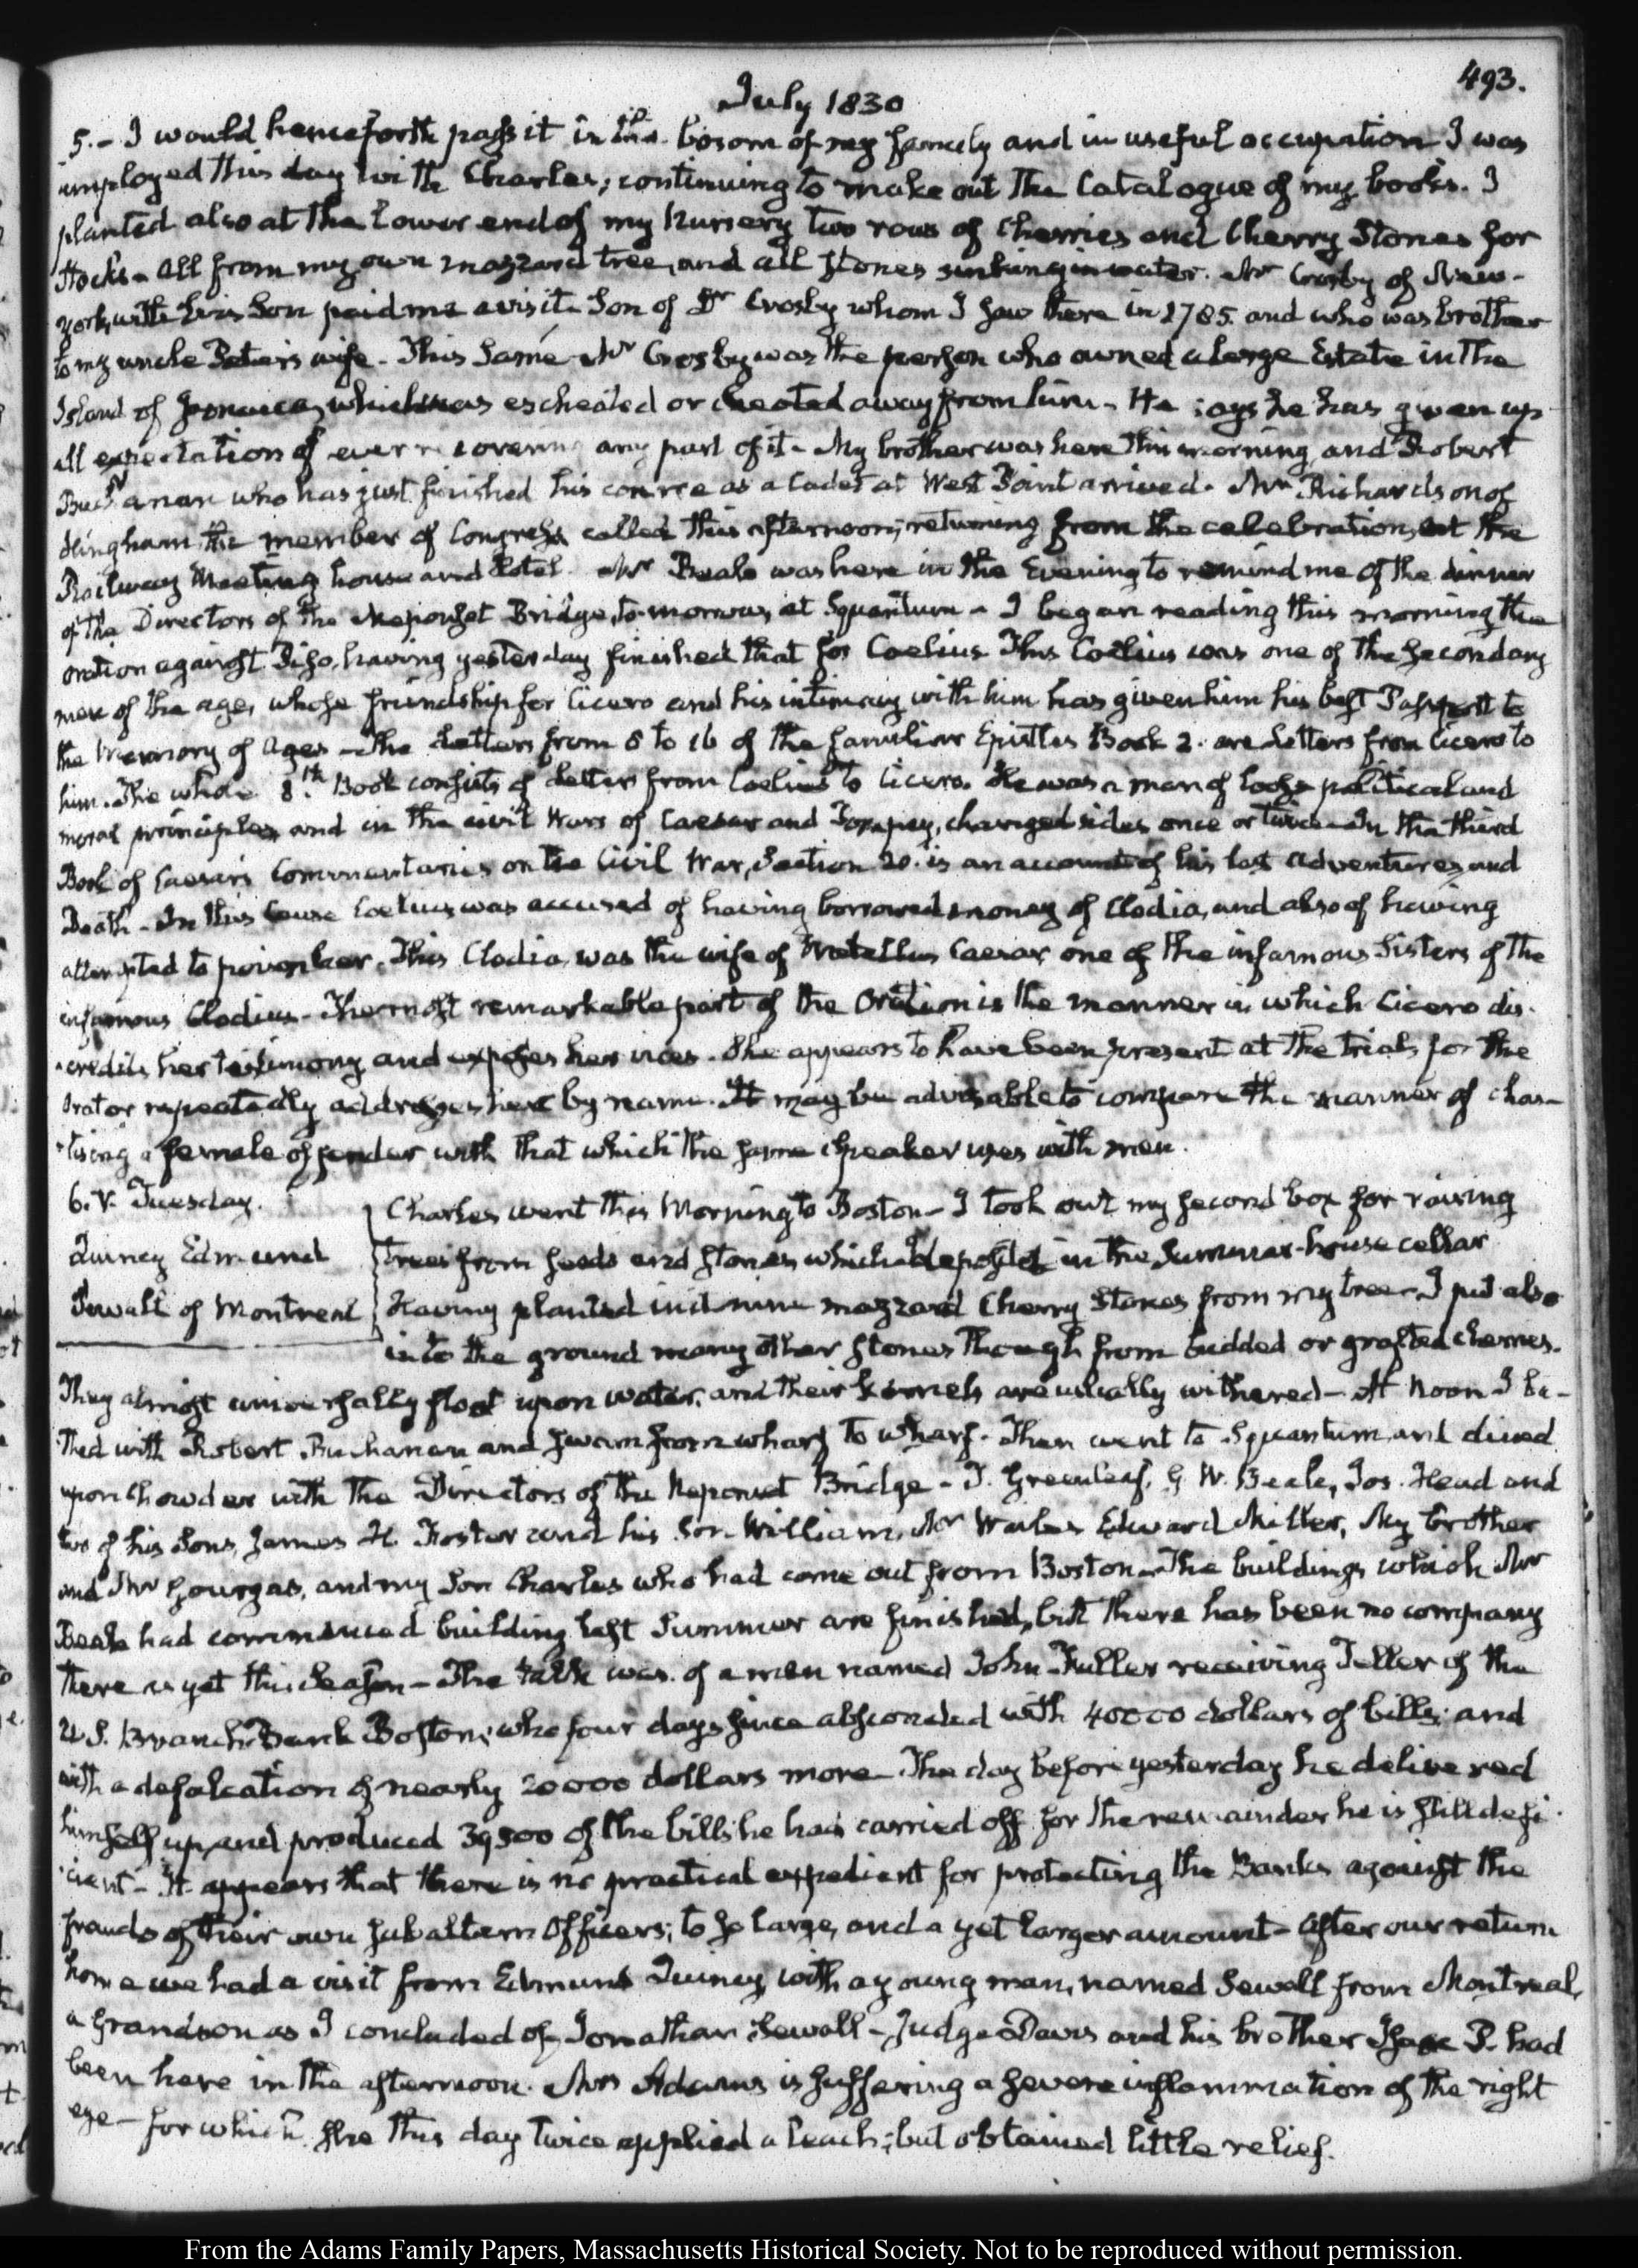 493.
July 1830
5.- I would henceforth pass it in the bosom of my family and in useful occupation I was
employed this day with Charles; continuing to make out the Catalogue of my books. I
planted also at the lower end of my Nursery two rows of Cherries and Cherry Stones for
Stocks - all from my own mazzard tree, and all stones sinking in water. Mr Crosby of New-
york, with his Son paid me a visit - Son of Dr Crosby whom I saw there in 1785. and who was brother
to my uncle Peter's wife - This same Mr Crosby was the person who owned a large Estate in the
Island of Jamaica, which was escheated or cheated away from him - He says he has given up
all expectation of ever recovering any part of it - My brother was here this morning, and Robert
Buchanan who has just finished his course as a Cadet at West Point arrived. Mr Richardson of
Hingham, the member of Congress called this afternoon; returning from the celebration, at the
Railway Meeting house and Hotel. Mr Beale was here in the Evening to remind me of the dinner
of the Directors of the Neponset Bridge, to-morrow, at Squantum - I began reading this morning the
oration against Piso, having yesterday finished that for Coelius This Coelius was one of the secondary
men of the age, whose friendship for Cicero and his intimacy with him has given him his best Passport to
the Memory of Ages - The Letters from 8 to 16 of the familiar Epistles Book 2. are Letters from Cicero to
him. The whole 8.th Book consists of Letters from Coelius to Cicero. He was a man of loose political and
moral principles and in the civil Wars of Caesar and Pompey, changed sides once or twice - In the third
Book of Caesar's Commentaries on the Civil War, Section 20. is an account of his last adventures and
Death - In this Cause Coelius was accused of having borrowed money of Clodia, and also of having
attempted to poison her. This Clodia was the wife of Metellus Caesar one of the infamous Sisters of the
infamous Clodius - The most remarkable part of the Oration is the manner in which Cicero dis-
credits her testimony and exposes her vices. She appears to have been present at the trial, for the
Orator repeatedly addresses her by name. It may be advisable to compare the manner of chas-
tising a female offender with that which the same speaker uses with men.
6. V. Tuesday.
Quincy Edmund
Sewall of Montreal
Charles went this Morning to Boston - I took out my second box for raising
trees from seeds and stones which I deposited in the Summer-house cellar
Having planted in it nine mazzard Cherry Stones from my tree - I put also
into the ground many other stones though from budded or grafted cherries.
They almost universally float upon water, and their kernels are usually withered - At Noon I ba-
thed with Robert Buchanan and swam from wharf to wharf - Then went to Squantum, and dined
upon Chowder with the Directors of the Neponset Bridge - T. Greenleaf, G. W. Beale, Jos. Head and
two of his Sons, James H. Foster and his Son William, Mr Edward Miller, My brother
and Mr Gourgas, and my Son Charles who had come out from Boston - The buildings which Mr
Beale had commenced building last Summer are finished, but there has been no company
there as yet this season - The talk was of a man named John Fuller receiving Teller of the
U. S. Branch Bank Boston; who four days since absconded with 40000 dollars of bills; and
with a defalcation of nearly 20000 dollars more - The day before yesterday he delivered
himself up, and produced 39500 of the bills he had carried off for the remainder he is still defi-
cient - It appears that there is no practical expedient for protecting the Banks against the
frauds of their own subaltern Officers; to so large, and a yet larger amount - After our return
home we had a visit from Edmund Quincy, with a young man, named Sewall from Montreal,
a Grandson as I concluded of Jonathan Sewall - Judge Davis and his brother Isaac P. had
been here in the afternoon. Mrs Adams is suffering a severe inflammation of the right
eye - for which she this day twice applied a leach; but obtained little relief.
From the Adams Family Papers, Massachusetts Historical Society. Not to be reproduced without permission.